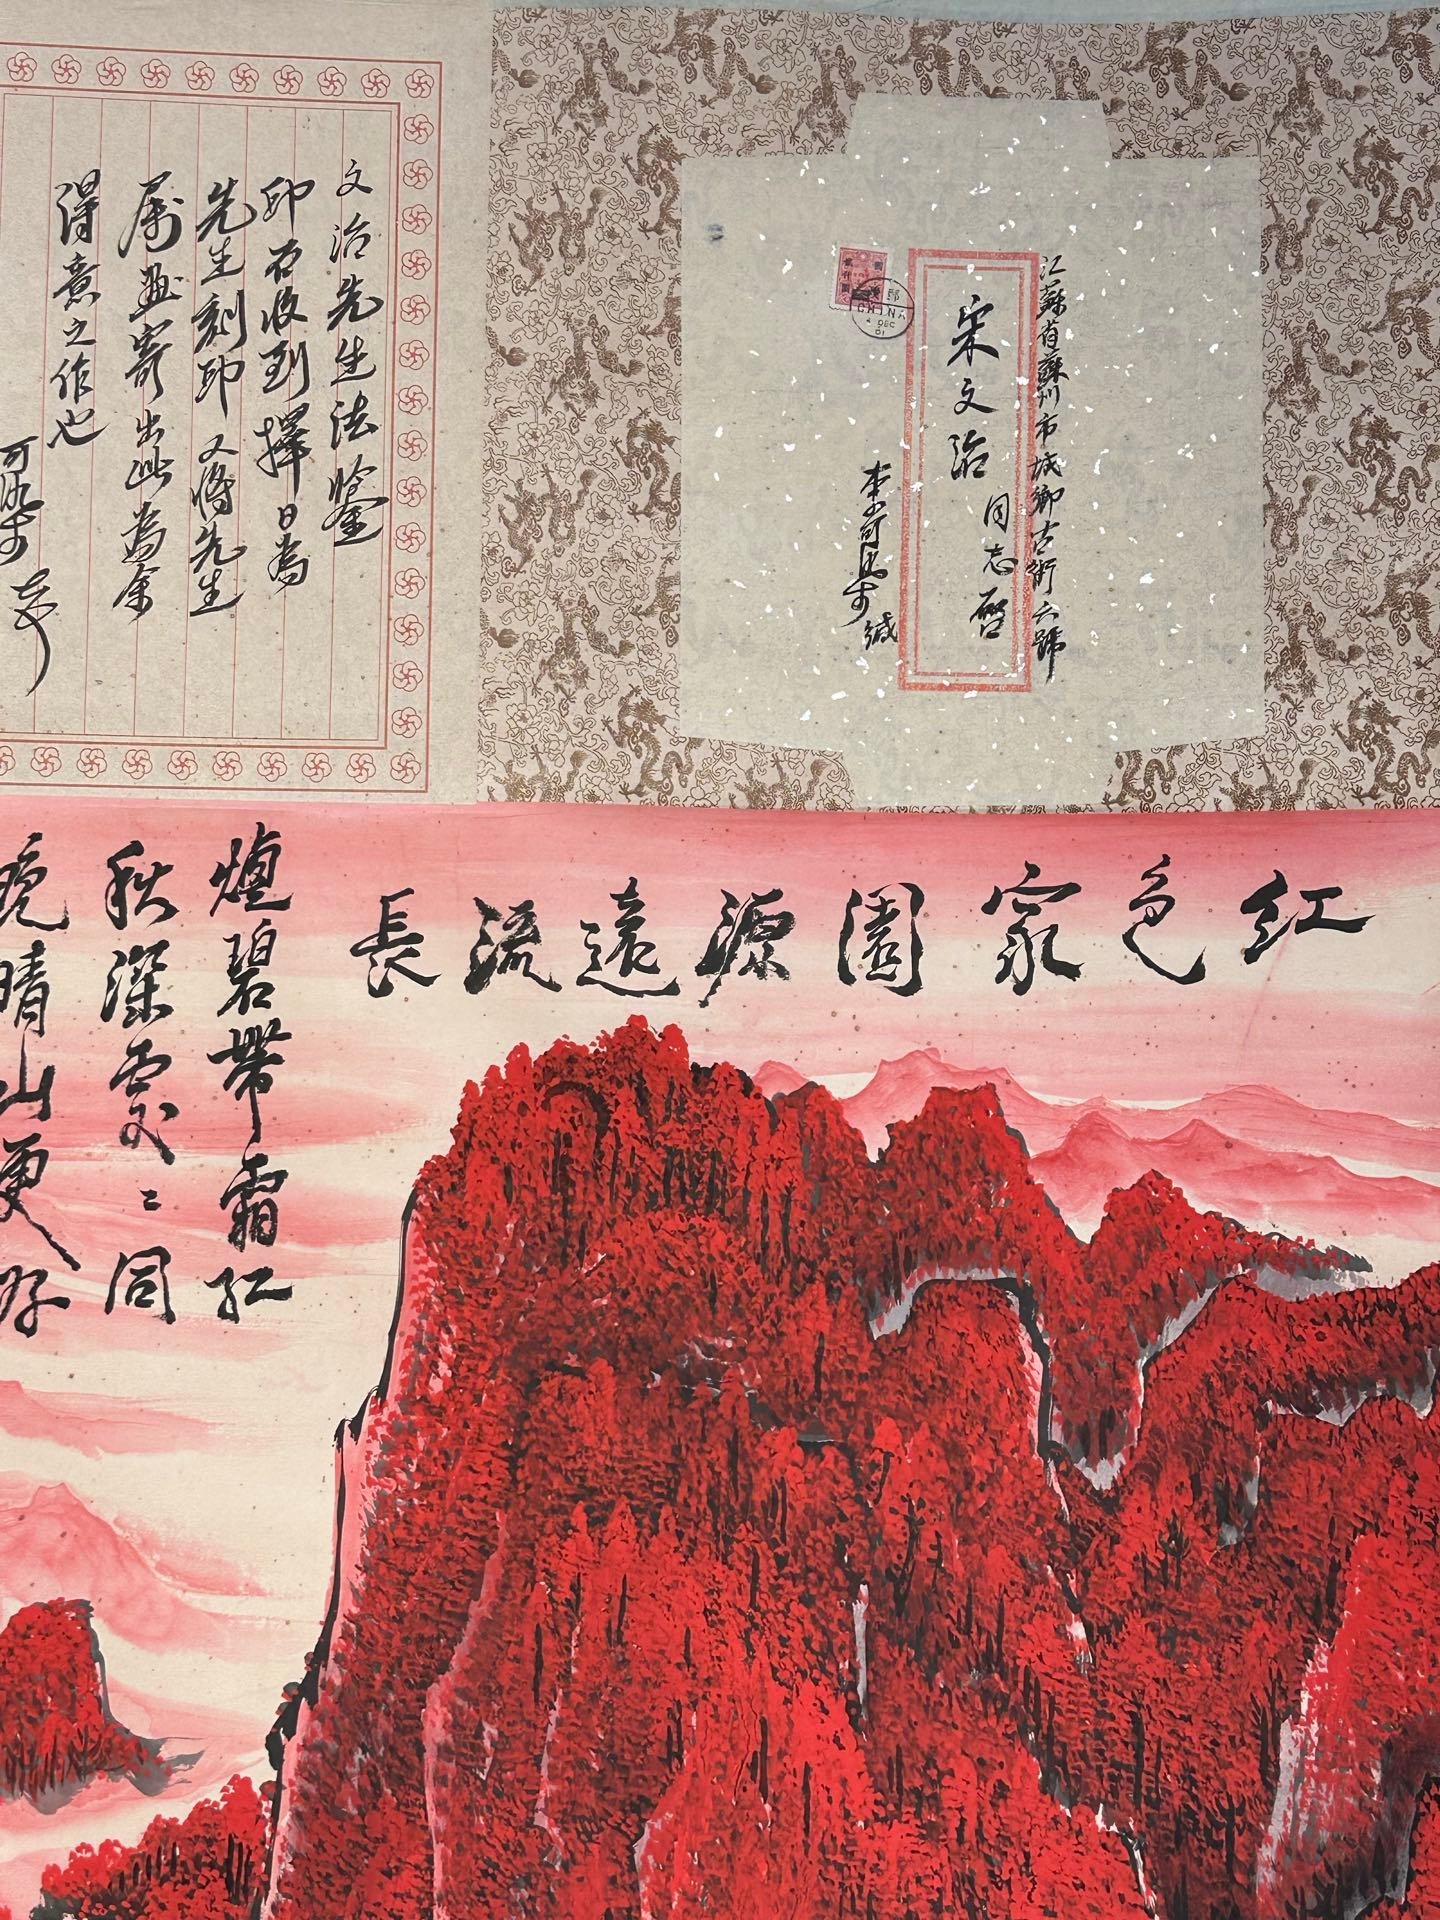 江蘇省蘇州市城鄉古街六號
宋文治
同志啓
李可染
緘
CHINA
DEC
文治先生法鉴
印石收到擇日為
先生刻印又将先生
属画寄出此為余
得意之作也
可染
红色家園源遠流長
爐碧帶霜红
秋深雲氣々同
晚晴山更好